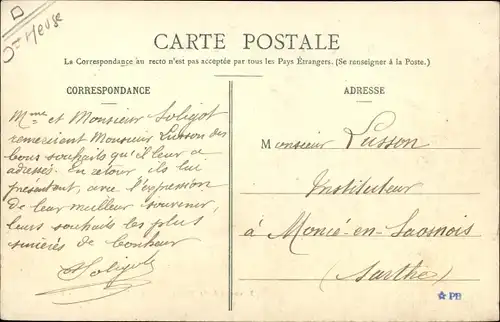 CARTE POSTALE
La Correspondance au recto n'est pas acceptée par tous les Pays Étrangers. (Se renseigner à la Poste.)
CORRESPONDANCE
Mme et Monsieur Soligot
remercient Monsieur Lusson des
bons souhaits qu'il leur a
adressés. En retour ils lui
présentent, avec l'expression
de leur meilleur souvenir,
leurs souhaits les plus
sincères de bonheur
Soligot
ADRESSE
Monsieur Lusson
Instituteur
à Moncé-en-Saosnois
(Sarthe)
PB